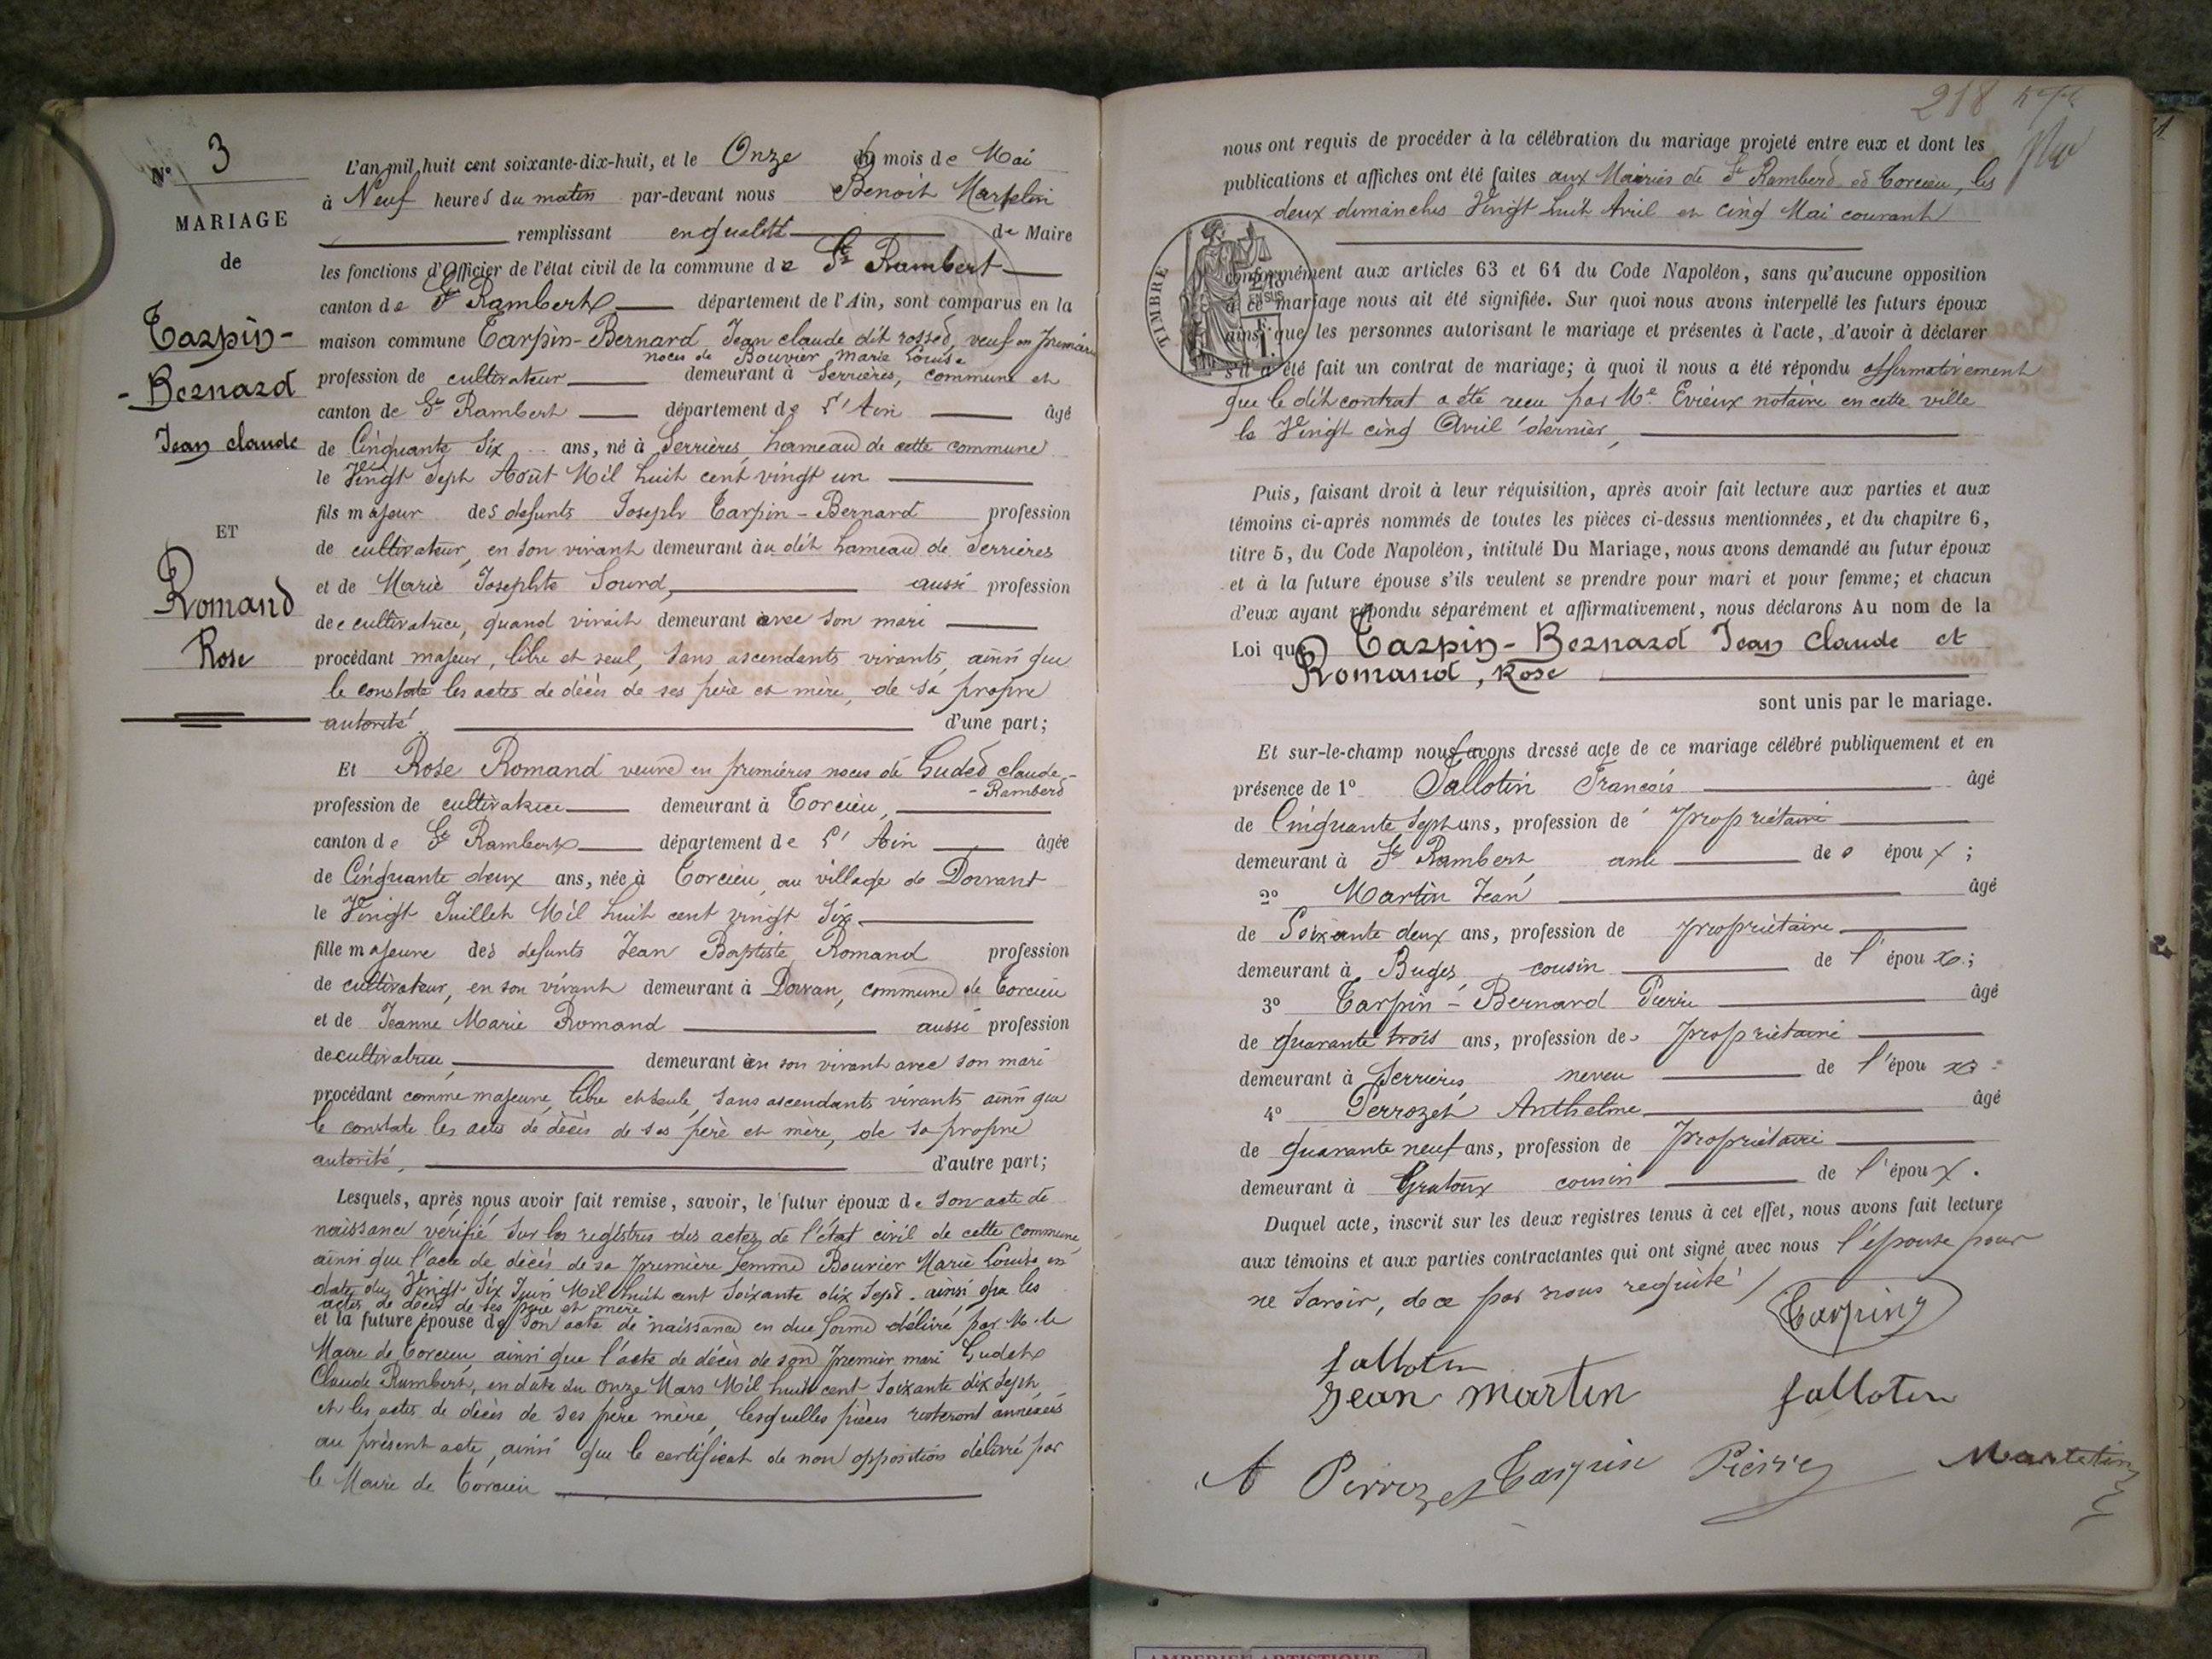 N° 3
MARIAGE
de
Tarpin-
-Bernard
Jean claude
ET
Romand
Rose
L'an mil huit cent soixante-dix-huit, et le Onze du mois de Mai
à Neuf heures du matin par-devant nous Benoit Martelin
remplissant en qualité de Maire
les fonctions d'Officier de l'état civil de la commune de St Rambert
canton de St Rambert département de l'Ain, sont comparus en la
maison commune Tarpin-Bernard Jean claude dit rosset, veuf en premières
noces de Bouvier Marie Louise
profession de cultivateur demeurant à Serrières, commune et
canton de St Rambert département de l'Ain âgé
de Cinquante Six ans, né à Serrières, hameau de cette commune
le Vingt Sept Août Mil huit cent vingt un
fils majeur des défunts Joseph Tarpin-Bernard profession
de cultivateur, en son vivant demeurant au dit hameau de Serrières
et de Marie Josephte Sourd, aussi profession
de cultivatrice, quand vivait demeurant avec son mari
procédant majeur, libre et seul, sans ascendants vivants, ainsi que
le constate les actes de décès de ses père et mère, de sa propre
autorité d'une part;
Et Rose Romand veuve en premières noces de Gudet claude-
-Rambert
profession de cultivatrice demeurant à Torcieu,
canton de St Rambert département de l'Ain âgée
de Cinquante deux ans, née à Torcieu, au village de Dorvant
le Vingt Juillet Mil huit cent vingt Six
fille majeure des défunts Jean Baptiste Romand profession
de cultivateur, en son vivant demeurant à Dorvan, commune de Torcieu
et de Jeanne Marie Romand aussi profession
de cultivatrice, demeurant en son vivant avec son mari
procédant comme majeure, libre et seule, sans ascendants vivants ainsi que
le constate les actes de décès de ses père et mère, de sa propre
autorité, d'autre part;
Lesquels, après nous avoir fait remise, savoir, le futur époux de son acte de
naissance vérifié sur les registres des actes de l'état civil de cette commune,
ainsi que l'acte de décès de sa première femme Bouvier Marie Louise en
date du Vingt Six Juin Mil huit cent Soixante dix Sept - ainsi que les
actes de décès de ses père et mère
et la future épouse de son acte de naissance en due forme délivré par M. le
Maire de Torcieu, ainsi que l'acte de décès de son premier mari Gudet
Claude Rambert, en date du Onze Mars Mil huit cent Soixante dix Sept,
et les actes de décès de ses père mère, lesquelles pièces resteront annexées
au présent acte, ainsi que le certificat de non opposition délivré par
le Maire de Torcieu
218
nous ont requis de procéder à la célébration du mariage projeté entre eux et dont les
publications et affiches ont été faites aux Mairies de St Rambert et Torcieu, les
deux dimanches Vingt huit Avril et cinq Mai courant
TIMBRE
conformément aux articles 63 et 64 du Code Napoléon, sans qu'aucune opposition
à ce mariage nous ait été signifiée. Sur quoi nous avons interpellé les futurs époux
ainsi que les personnes autorisant le mariage et présentes à l'acte, d'avoir à déclarer
s'il a été fait un contrat de mariage; à quoi il nous a été répondu affirmativement
que le dit contrat a été reçu par Me Evieux notaire en cette ville
le Vingt cinq Avril dernier,
Puis, faisant droit à leur réquisition, après avoir fait lecture aux parties et aux
témoins ci-après nommés de toutes les pièces ci-dessus mentionnées, et du chapitre 6,
titre 5, du Code Napoléon, intitulé Du Mariage, nous avons demandé au futur époux
et à la future épouse s'ils veulent se prendre pour mari et pour femme; et chacun
d'eux ayant répondu séparément et affirmativement, nous déclarons Au nom de la
Loi que Tarpin-Bernard Jean Claude et
Romand, Rose
sont unis par le mariage.
Et sur-le-champ nous avons dressé acte de ce mariage célébré publiquement et en
présence de 1° Jallotin François âgé
de Cinquante Sept ans, profession de propriétaire
demeurant à St Rambert ami des époux;
2° Martin Jean âgé
de Soixante deux ans, profession de propriétaire
demeurant à Buges, cousin de l'époux;
3° Tarpin-Bernard Pierre âgé
de quarante trois ans, profession de propriétaire
demeurant à Serrières neveu de l'époux
4° Perrozet Anthelme âgé
de quarante neuf ans, profession de propriétaire
demeurant à Gratoux cousin de l'époux.
Duquel acte, inscrit sur les deux registres tenus à cet effet, nous avons fait lecture
aux témoins et aux parties contractantes qui ont signé avec nous l'épouse pour
ne savoir, de ce par nous requise
Tarpin
jallotin
jean martin jallotin
A Perrozet Tarpin Pierre Martelin
AMBERIEU ARTISTIQUE